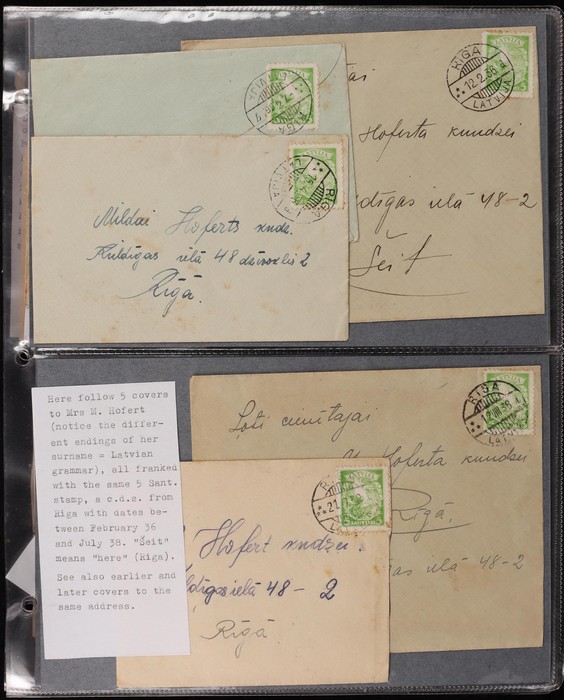 LATVIJA
5
RIGA
12.2.36
LATVIJA
Hoferta kundzei
ielā 48-2
Šeit
LATVIJA
RIGA
RIGA
Mildai Hoferts kndz.
Kuldīgas ielā 48 dzīvoklis 2
Rīgā.
Here follow 5 covers
to Mrs M. Hofert
(notice the differ-
ent endings of her
surname = Latvian
grammar), all franked
with the same 5 Sant.
stamp, a c.d.s. from
Riga with dates be-
tween February 36
and July 38. "Šeit"
means "here" (Riga).
See also earlier and
later covers to the
same address.
RIGA
Ļoti cienītajai
Hoferta kundzei
Rīgā.
ielā 48-2
5
LATVIJA
Hofert kndzei.
ielā 48 - 2
Rīgā